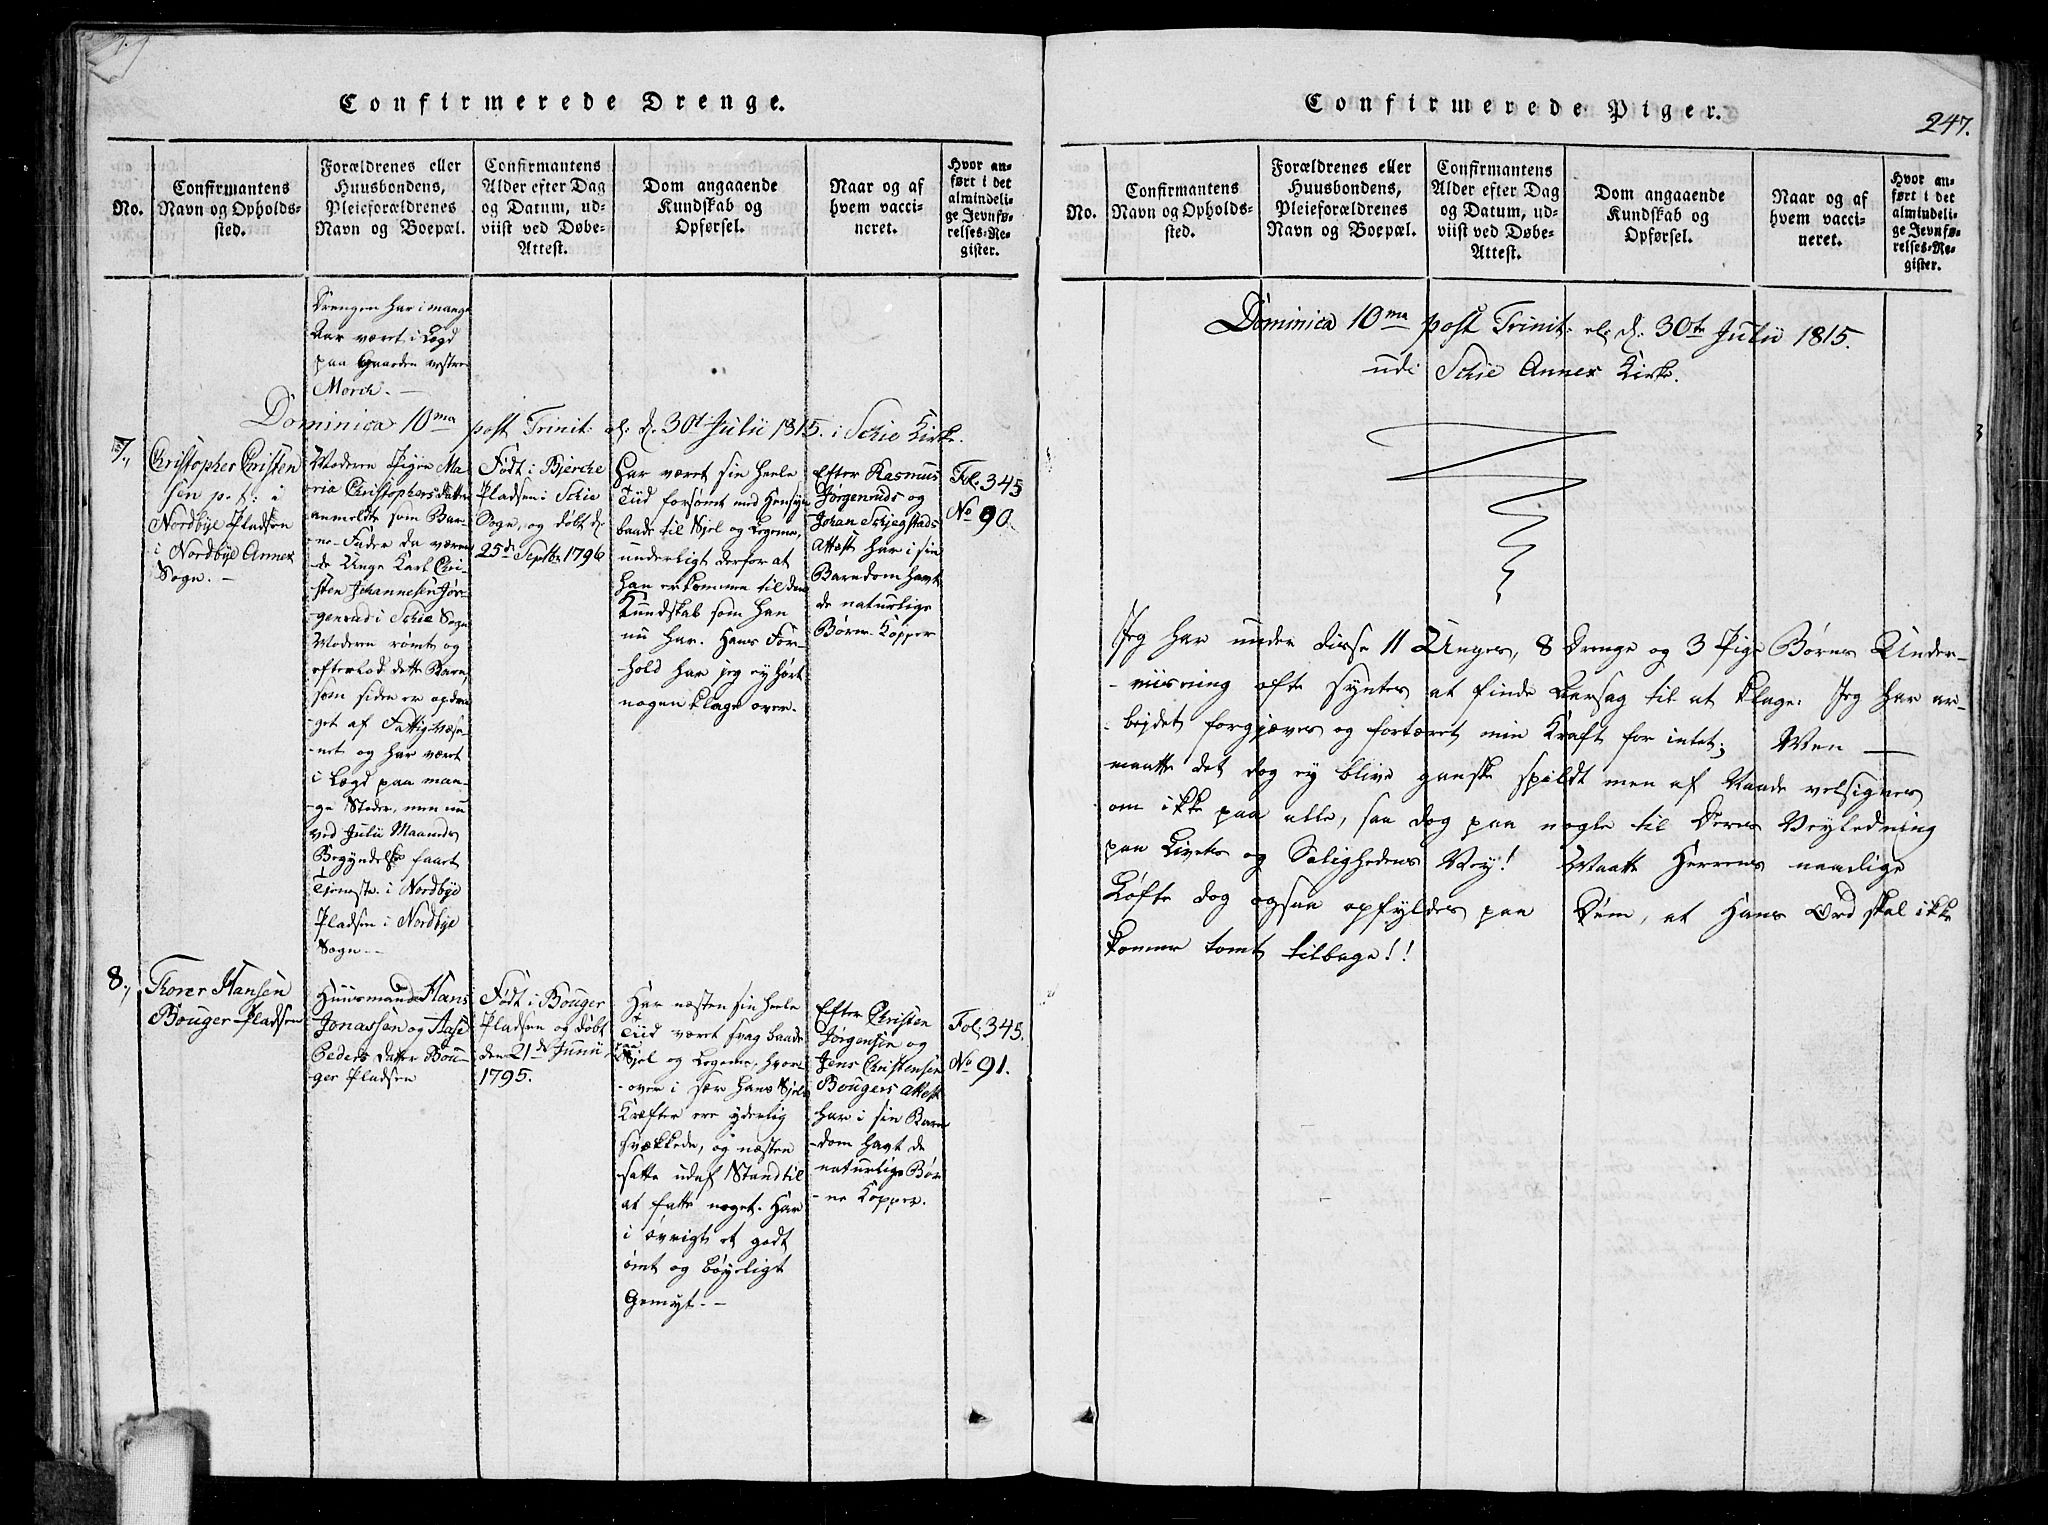 Confirmerede Drenge.
No.
Confirmantens
Navn og Opholds-
sted.
Forældrenes eller
Huusbondens,
Pleieforældrenes
Navn og Boepæl.
Confirmantens
Alder efter Dag
og Datum, ud-
viist ved Døbe-
Attest.
Dom angaaende
Kundskab og
Opførsel.
Naar og af
hvem vacci-
neret.
Hvor an-
ført i det
almindeli-
ge Jevnfø-
relses-Re-
gister.
Drengen har i mange
Aar været i Lægd
paa Gaarden vestre
Morch. -
Dominica 10ma post Trinit: el: d: 30t Julii 1815. i Schie Kirke.
7.,
Christopher Christen
sen p. t: i
Nordbye Pladsen
i Nordbye Annex
Sogn. -
Moderen Pigen Ma
ria Christophersdatter
anmeldte som Bar-
ne-Fader da væren
de Unge Karl Chri-
sten Johannesen Jør-
genrud i Schie Sogn
Moderen rømte og
efterlod dette Barn,
som siden er opdra
-get af Fattigvæse
-net og har været
i Lægd paa man-
ge Steder, men nu
ved Julii Maaneds
Begyndelse faaet
Tjeneste i Nordbye
Pladsen i Nordbye
Sogn. -
Født i Bjerche
Pladsen i Schie
Sogn, og døbt d.
25de Septbr 1796
Har været sin heele
Tiid forsømt med Hensyn
baade til Sjel og Legeme,
underligt derfor at
han er komme til den
Kundskab som han
nu har. Hans For-
-hold har jeg ey hørt
nogen klage over.
Efter Rasmus
Jørgenruds og
Johan Schjegstads
Attest har i sin
Barndom havt
de naturlige
Børne-Kopper
Fol. 345
No 90.
8.,
Thorer Hansen
Bouger Pladsen
Huusmand Hans
Jonassen og Aase
Peders Datter Bou-
ger Pladsen
Født i Bouger
Pladsen og døbt
den 21de Junii
1795.
Har næsten sin heele
Tiid været svag baade
paa
Sjel og Legeme, hvor
-over i sær hans Sjels
Kræfter ere yderlig
svækkede, og næsten
satte udaf Stand til
at fatte noget. Har
i øvrigt et godt
ømt og bøyeligt
Gemyt. -
Efter Christen
Jørgensen og
Jens Christensen
Bougers Attest
har i sin Barn
-dom havt de
naturlige Bør
-ne Kopper.
Fol: 345.
No 91.
Confirmerede Piger.
247.
No.
Confirmantens
Navn og Opholds-
sted.
Forældrenes eller
Huusbondens,
Pleieforældrenes
Navn og Boepæl.
Confirmantens
Alder efter Dag
og Datum, ud-
viist ved Døbe-
Attest.
Dom angaaende
Kundskab og
Opførsel.
Naar og af
hvem vacci-
neret.
Hvor an-
ført i det
almindeli-
ge Jevnfø-
relses-Re-
gister.
Dominica 10ma post Trinit: el: d: 30te Julii 1815.
udi Schie Annex Kirke.
Jeg har under disse 11 Unges, 8 Drenge og 3 Pige Børns Under-
-viisning ofte syntes at finde Aarsag til at klage: Jeg har ar-
-bejdet forgjæves og fortæret min Kraft for intet; Men
maatte det dog ey blive ganske spildt men af Naade velsignes
om ikke paa alle, saa dog paa nogle til deres Veyledning
paa Livets og Salighedens Vey! Maatte Herrens naadige
Løfte dog ogsaa opfyldes paa Dem, at Hans Ord skal ikke
komme tomt tilbage!!